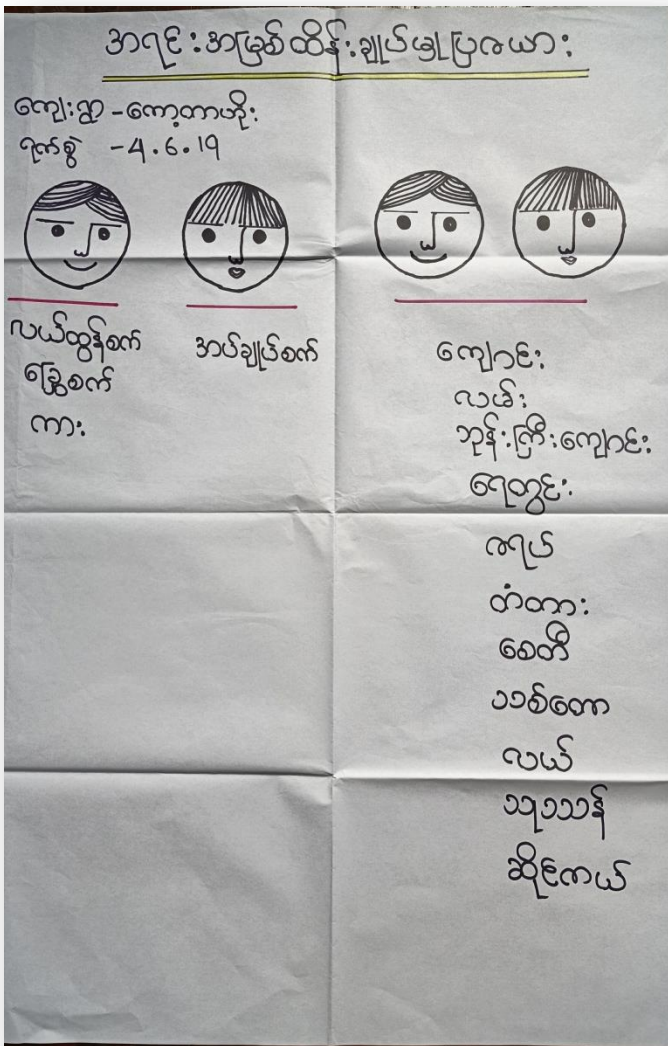 အရင်းအမြစ်ထိန်းချုပ်မှုပြဇယား
ကျေးရွာ - ကော့တာဟိုး
ရက်စွဲ - 4.6.19
လယ်ထွန်စက်
ခြွေစက်
ကား
အပ်ချုပ်စက်
ကျောင်း
လမ်း
ဘုန်းကြီးကျောင်း
ရေတွင်း
ဇရပ်
တံတား
စေတီ
သစ်တော
လယ်
သုသာန်
ဆိုင်ကယ်